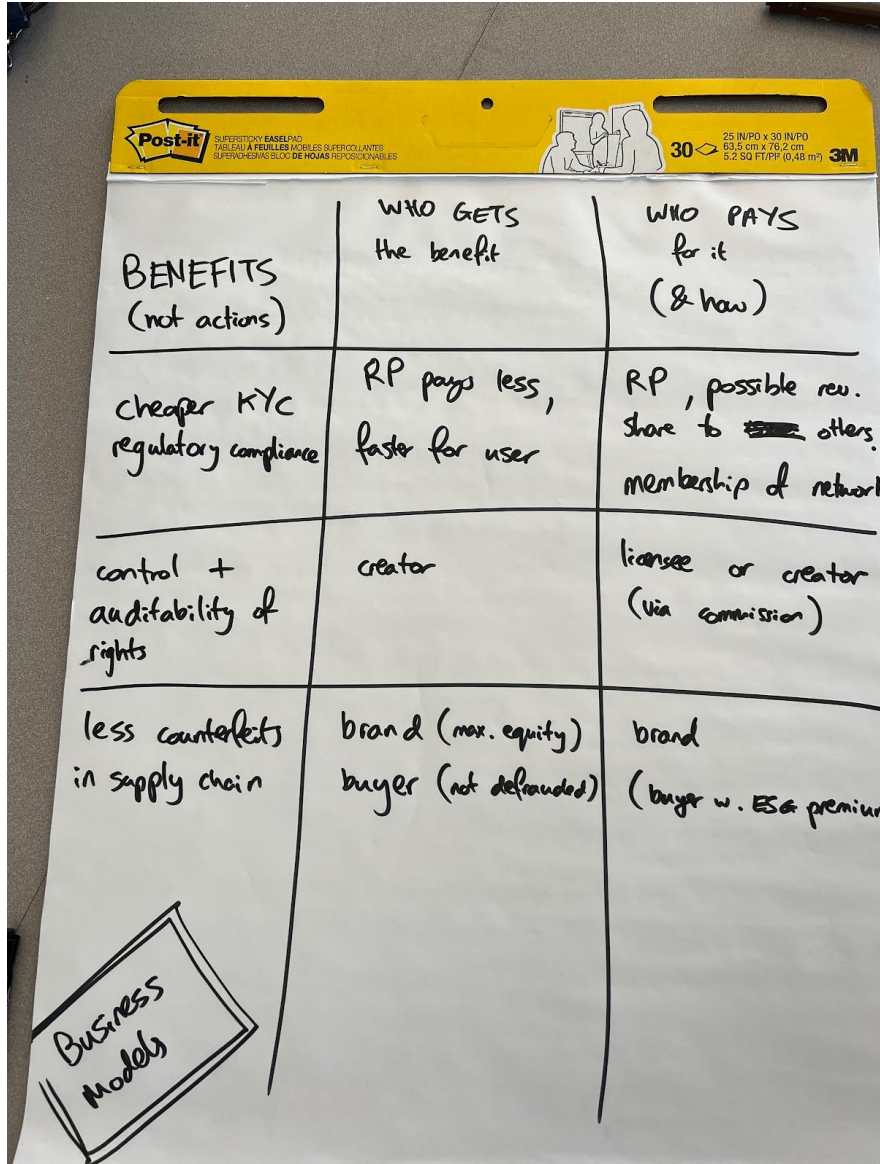 Post-it
SUPERSTICKY EASELPAD
TABLEAU À FEUILLES MOBILES SUPERCOLLANTES
SUPERADHESIVAS BLOC DE HOJAS REPOSICIONABLES
30
25 IN/PO x 30 IN/PO
63,5 cm x 76,2 cm
5.2 SQ FT/PI² (0,48 m²)
3M
BENEFITS
(not actions)
WHO GETS
the benefit
WHO PAYS
for it
(& how)
cheaper KYC
regulatory compliance
RP pays less,
faster for user
RP, possible rev.
share to others.
membership of network
control +
auditability of
rights
creator
licensee or creator
(via commission)
less counterfeits
in supply chain
brand (max. equity)
buyer (not defrauded)
brand
(buyer w. ESG premium
Business
Models